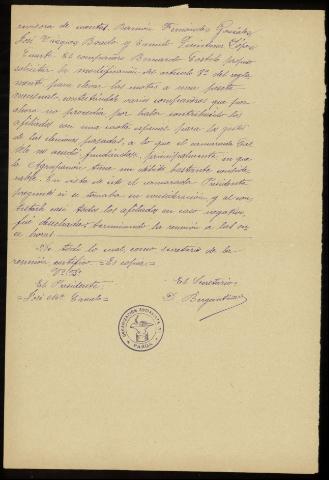 revisora de cuentas, Ramón Fernández González
José Vázquez Boado y Camilo Quintana López
Emite. El compañero Bernardo Castelo propuso
solicitar la modificación del artículo 7º del regla
mento para elevar las cuotas a una peseta
mensual, contestándole varios compañeros que por
ahora no procedía por haber contribuído los
afiliados con una cuota especial para los gastos
de las elecciones pasadas, a lo que el camarada Cas
telo no accedió fundándose principalmente en que
la Agrupación tenía un débito bastante conside
rable. En vista de esto el camarada Presidente
preguntó si se tomaba en consideración, y al con
testarle casi todos los afiliados en caso negativo,
fué desechada, terminando la reunión a las on
ce horas.
De todo lo cual, como secretario de la
reunión certifico. = Es copia =
Vº Bº
El Presidente El Secretario
= José Mª Canelo = D. Bergantiños
AGRUPACIÓN SOCIALISTA
PARGA